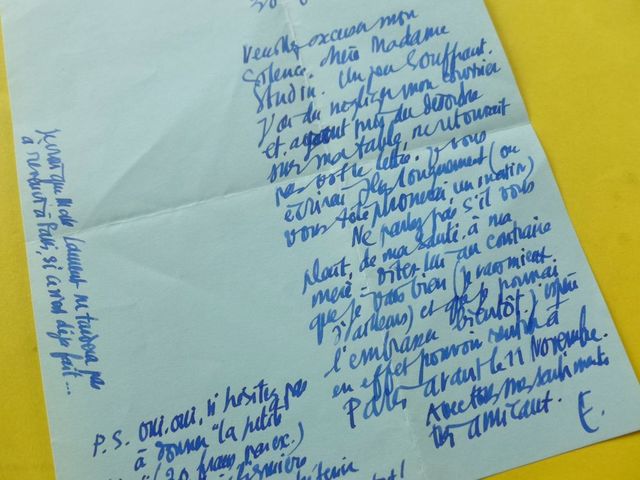 Veuillez excuser mon
silence, chère Madame
Studin. Un peu souffrant,
J'ai du négliger mon courrier
et ayant mis du désordre
sur ma table ne retrouvait
pas votre lettre. Je vous
écrirai plus longuement (ou
vous téléphonerai un matin)
Ne parlez pas, s'il vous
plait, de ma santé à ma
mère = dites lui au contraire
que je vais bien (je vais mieux
d'ailleurs) et que je pourrai
l'embrasser bientôt. J'espère
en effet pouvoir rentrer à
Paris avant le 11 Novembre.
Avec tous mes sentiments
très amicaux.
E.
Je crois que M. de Laurent ne tardera pas
à revenir à Paris, si ce n'est déjà fait...
P.S. Oui, oui, n'hésitez pas
à donner "la petite
(20 francs par ex.)